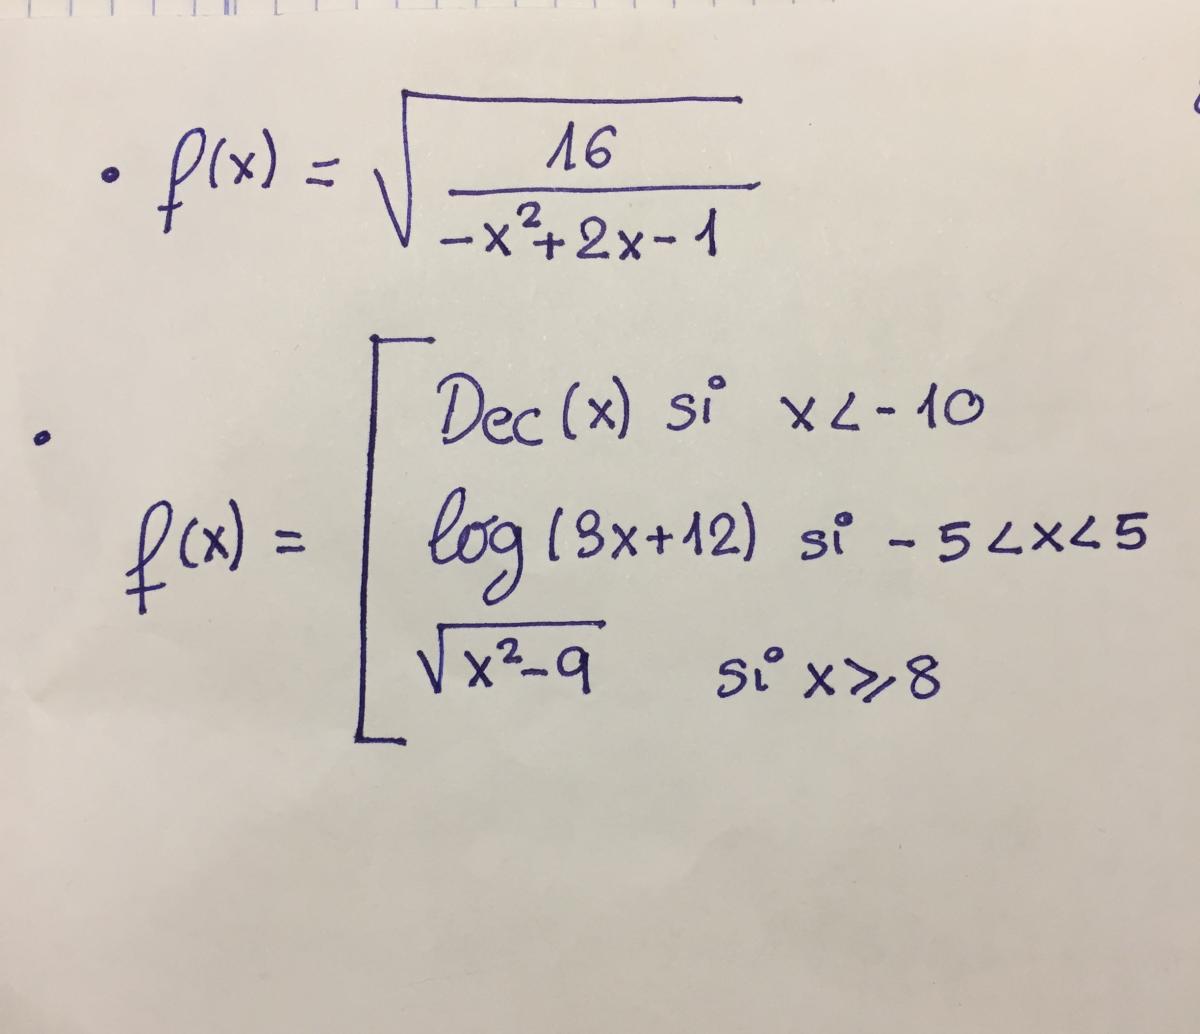 • f(x) = √(16 / (-x²+2x-1))
• f(x) = [ Dec(x) si x<-10
log(3x+12) si -5<x<5
√(x²-9) si x≥8